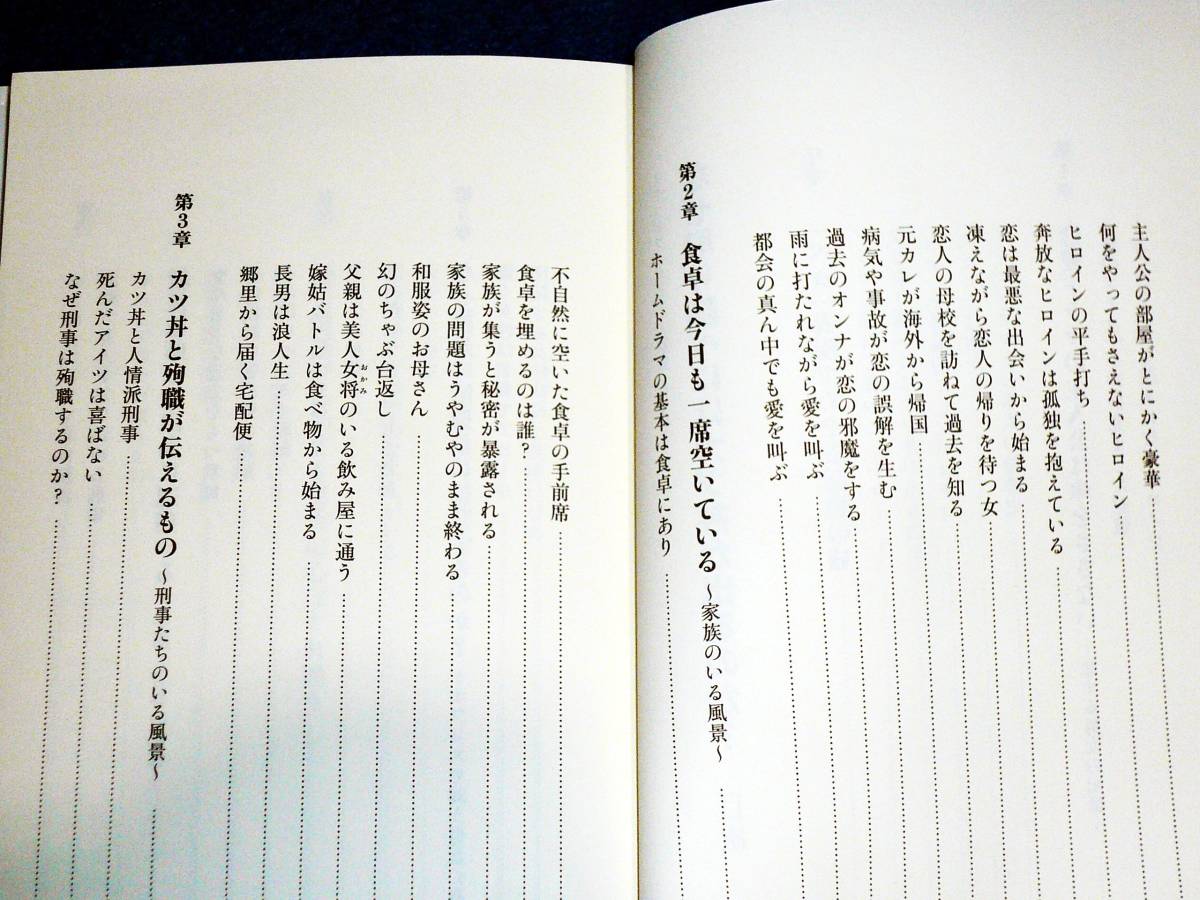 主人公の部屋がとにかく豪華
何をやってもさえないヒロイン
ヒロインの平手打ち
奔放なヒロインは孤独を抱えている
恋は最悪な出会いから始まる
凍えながら恋人の帰りを待つ女
恋人の母校を訪ねて過去を知る
元カレが海外から帰国
病気や事故が恋の誤解を生む
過去のオンナが恋の邪魔をする
雨に打たれながら愛を叫ぶ
都会の真ん中でも愛を叫ぶ
第2章 食卓は今日も一席空いている ～家族のいる風景～
ホームドラマの基本は食卓にあり
不自然に空いた食卓の手前席
食卓を埋めるのは誰?
家族が集うと秘密が暴露される
家族の問題はうやむやのまま終わる
和服姿のお母さん
幻のちゃぶ台返し
父親は美人女将のいる飲み屋に通う
おかみ
嫁姑バトルは食べ物から始まる
長男は浪人生
郷里から届く宅配便
第3章 カツ丼と殉職が伝えるもの ～刑事たちのいる風景～
カツ丼と人情派刑事
死んだアイツは喜ばない
なぜ刑事は殉職するのか?